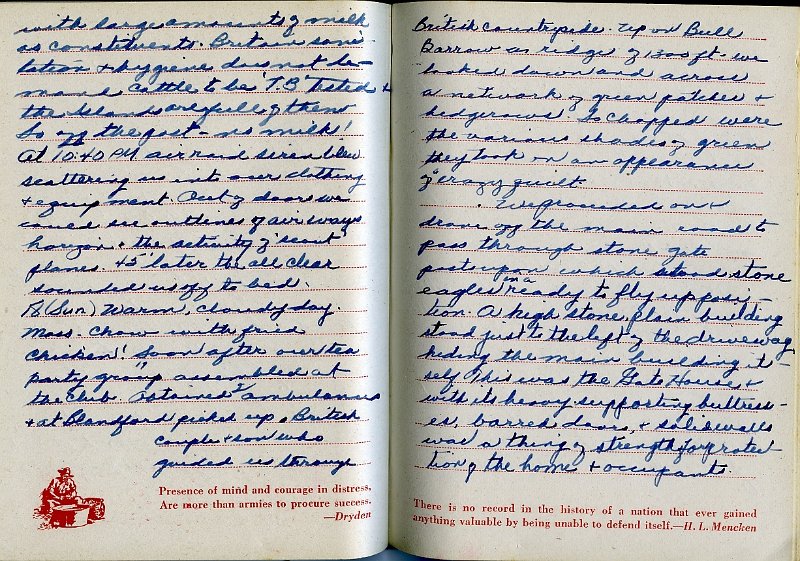 with large amounts of milk
as constituents. Britain sani-
tation & hygiene does not de-
mand cattle to be "T.B." Tested &
the Islands are full of them
So off the post - no milk!
At 10:40 PM air raid siren blew
scattering us into our clothing
& equipment. Out of doors we
could see outlines of air ways
horizon & the activity of scout
planes. 45' later the all clear
sounded us off to bed.
(Sun) Warm, cloudy day.
Mass. Chow with fried
Chicken! Soon after our tea
party group assembled at
the Club. Obtained 2 ambulances
& at Blandford picked up a British
couple & son who
guided us through
Presence of mind and courage in distress,
Are more than armies to procure success.
—Dryden
British countryside. Up on Bull
Barrow as ridge of 1300 ft. we
looked down and across
a network of green patches &
hedgerows. So chopped were
the various shades of green
they took on an appearance
of crazy quilt.
We proceeded on &
drove off the main road to
pass through stone gate
posts upon which stood stone
eagles in a ready to fly up posi-
tion. A high stone, plain building
stood just to the left of the driveway
hiding the main building it-
self. This was the Gate House &
with its heavy supporting buttress-
es, barred doors, & solid walls
was a thing of strength for protec-
tion of the home & occupants.
There is no record in the history of a nation that ever gained
anything valuable by being unable to defend itself.—H. L. Mencken